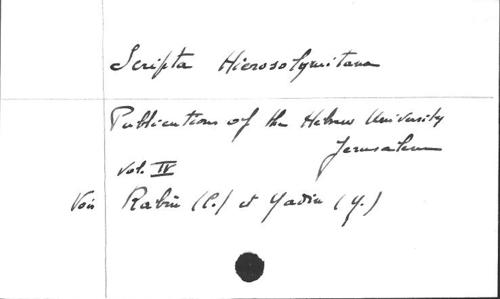 Scripta Hierosolymitana
Publications of the Hebrew University
Jerusalem
vol. IV
Voir Rabin (C.) et Yadin (Y.)